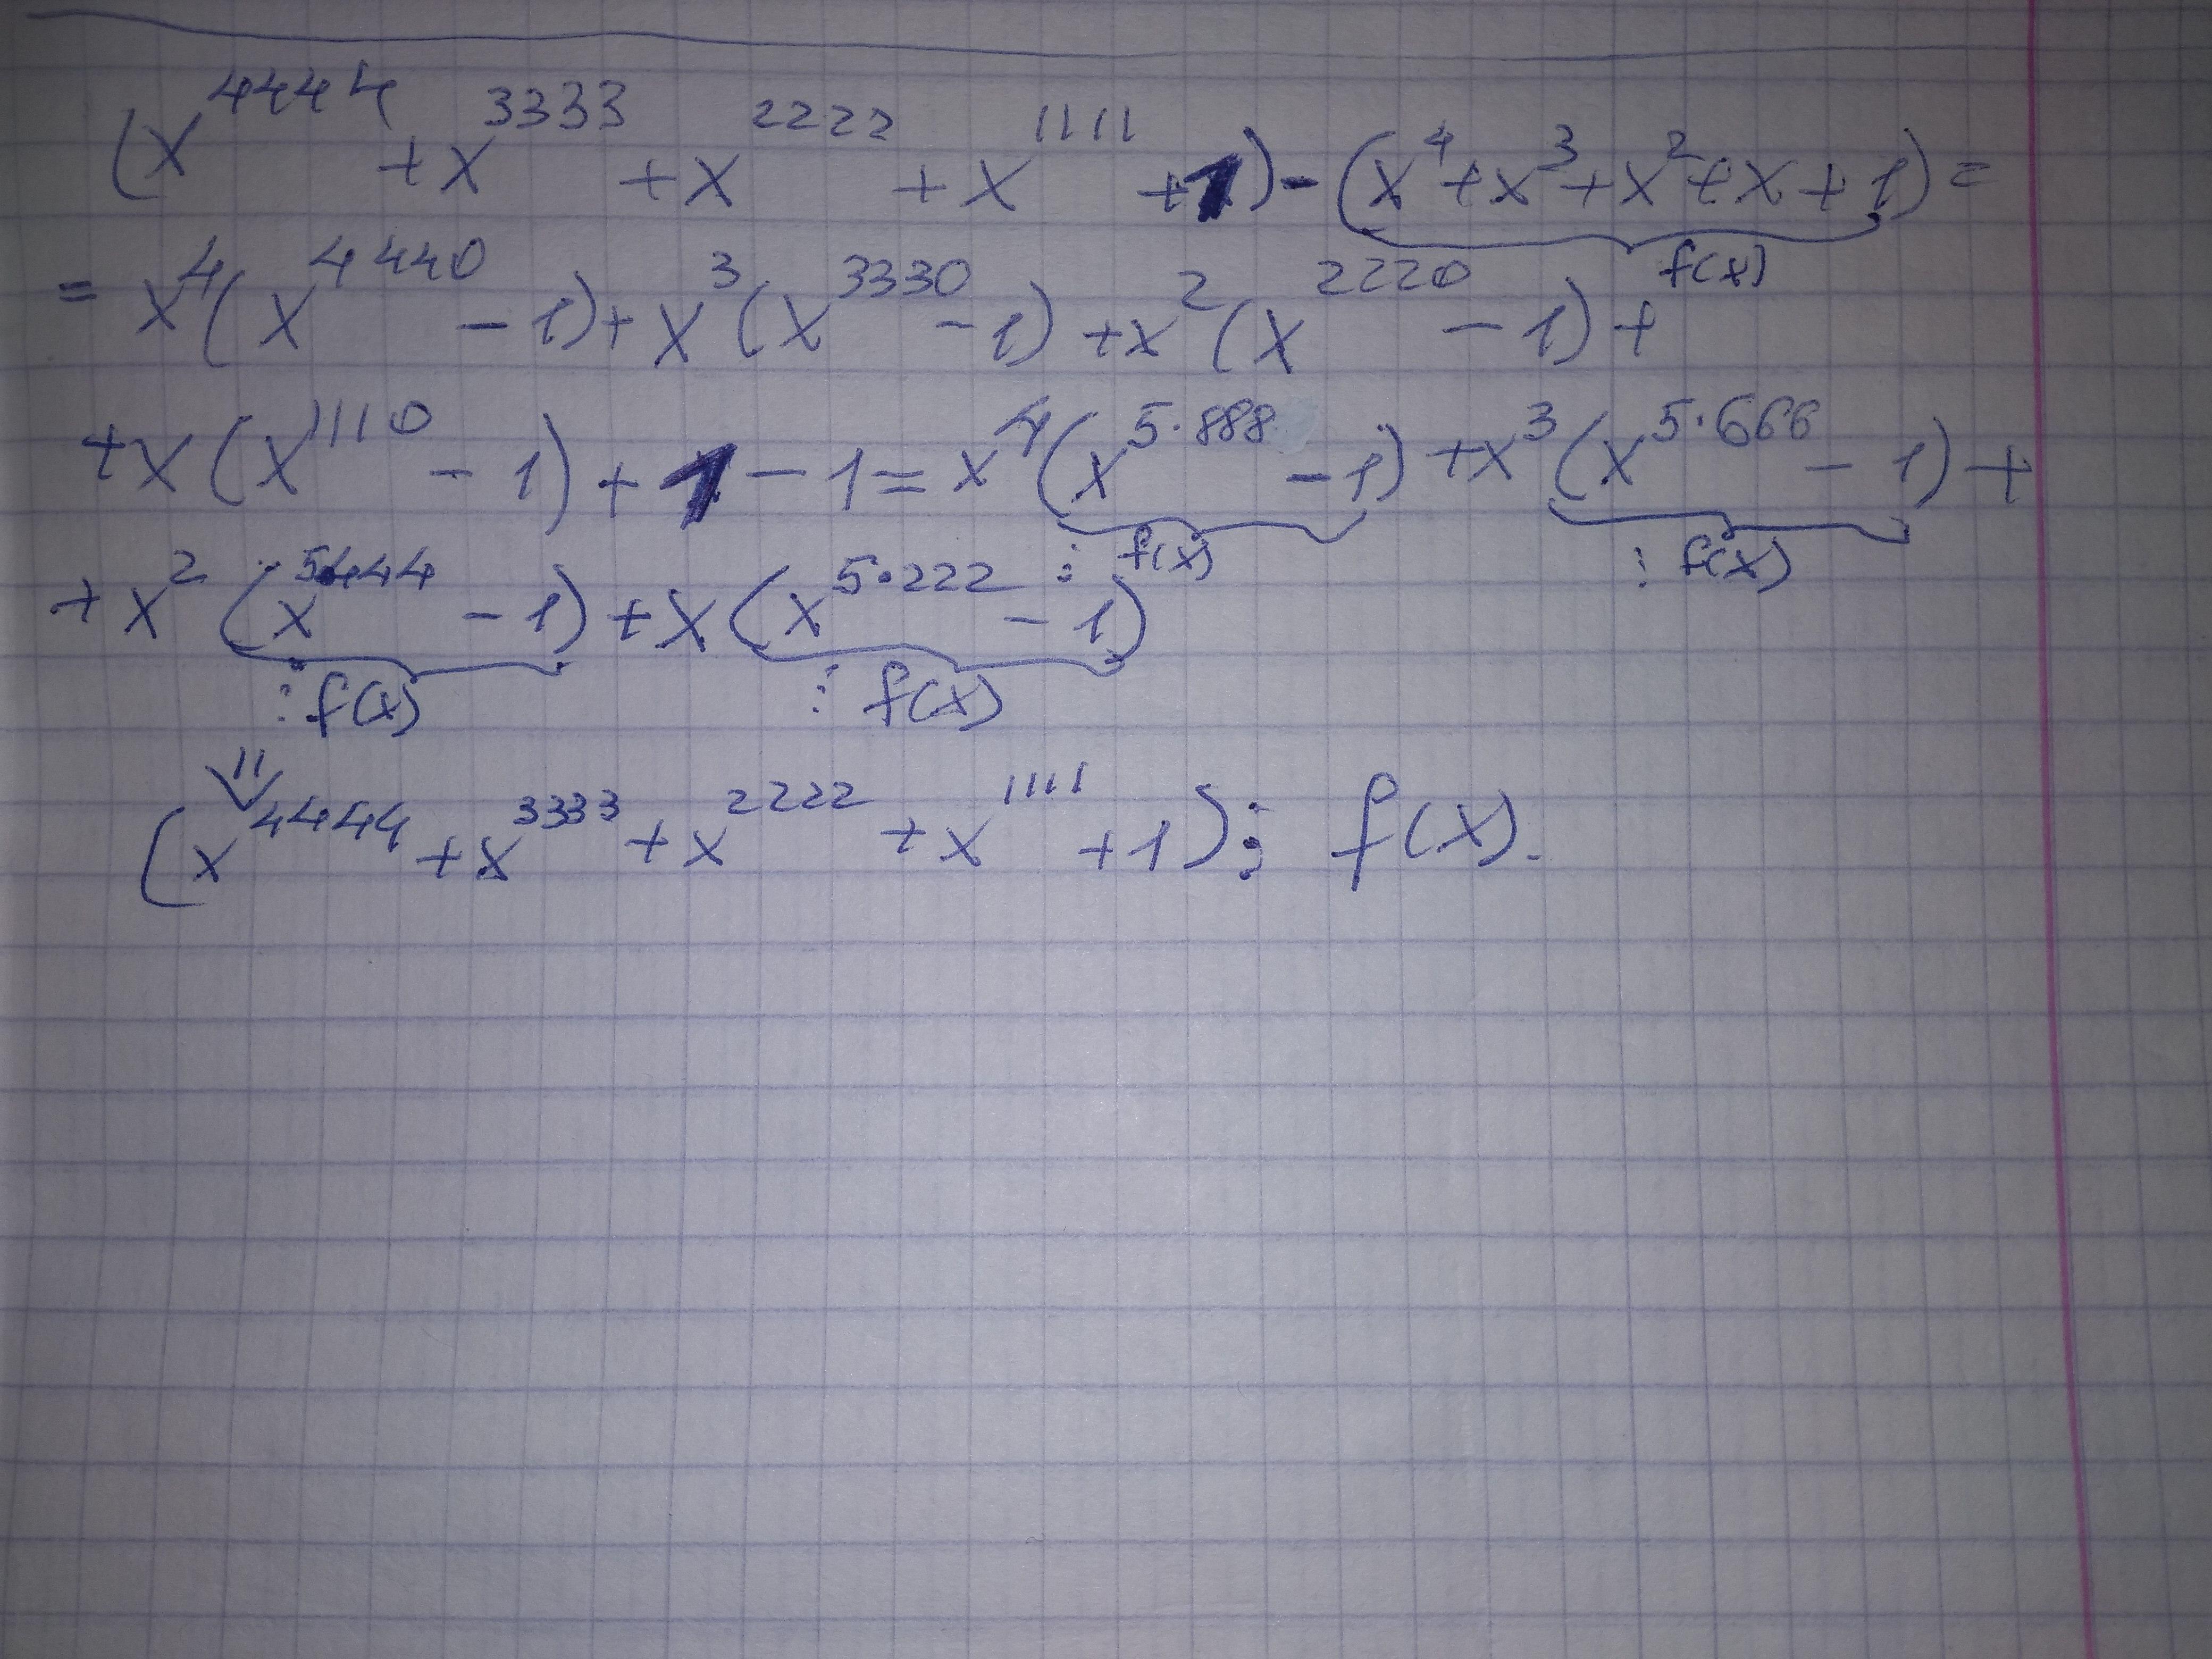 (x⁴⁴⁴⁴ + x³³³³ + x²²²² + x¹¹¹¹ + 1) - (x⁴ + x³ + x² + x + 1) =
f(x)
= x⁴(x⁴⁴⁴⁰ - 1) + x³(x³³³⁰ - 1) + x²(x²²²⁰ - 1) +
+ x(x¹¹¹⁰ - 1) + 1 - 1 = x⁴(x⁵·⁸⁸⁸ - 1) + x³(x⁵·⁶⁶⁶ - 1) +
⋮ f(x) ⋮ f(x)
+ x²(x⁵·⁴⁴⁴ - 1) + x(x⁵·²²² - 1)
⋮ f(x) ⋮ f(x)
⇓
(x⁴⁴⁴⁴ + x³³³³ + x²²²² + x¹¹¹¹ + 1) ⋮ f(x).